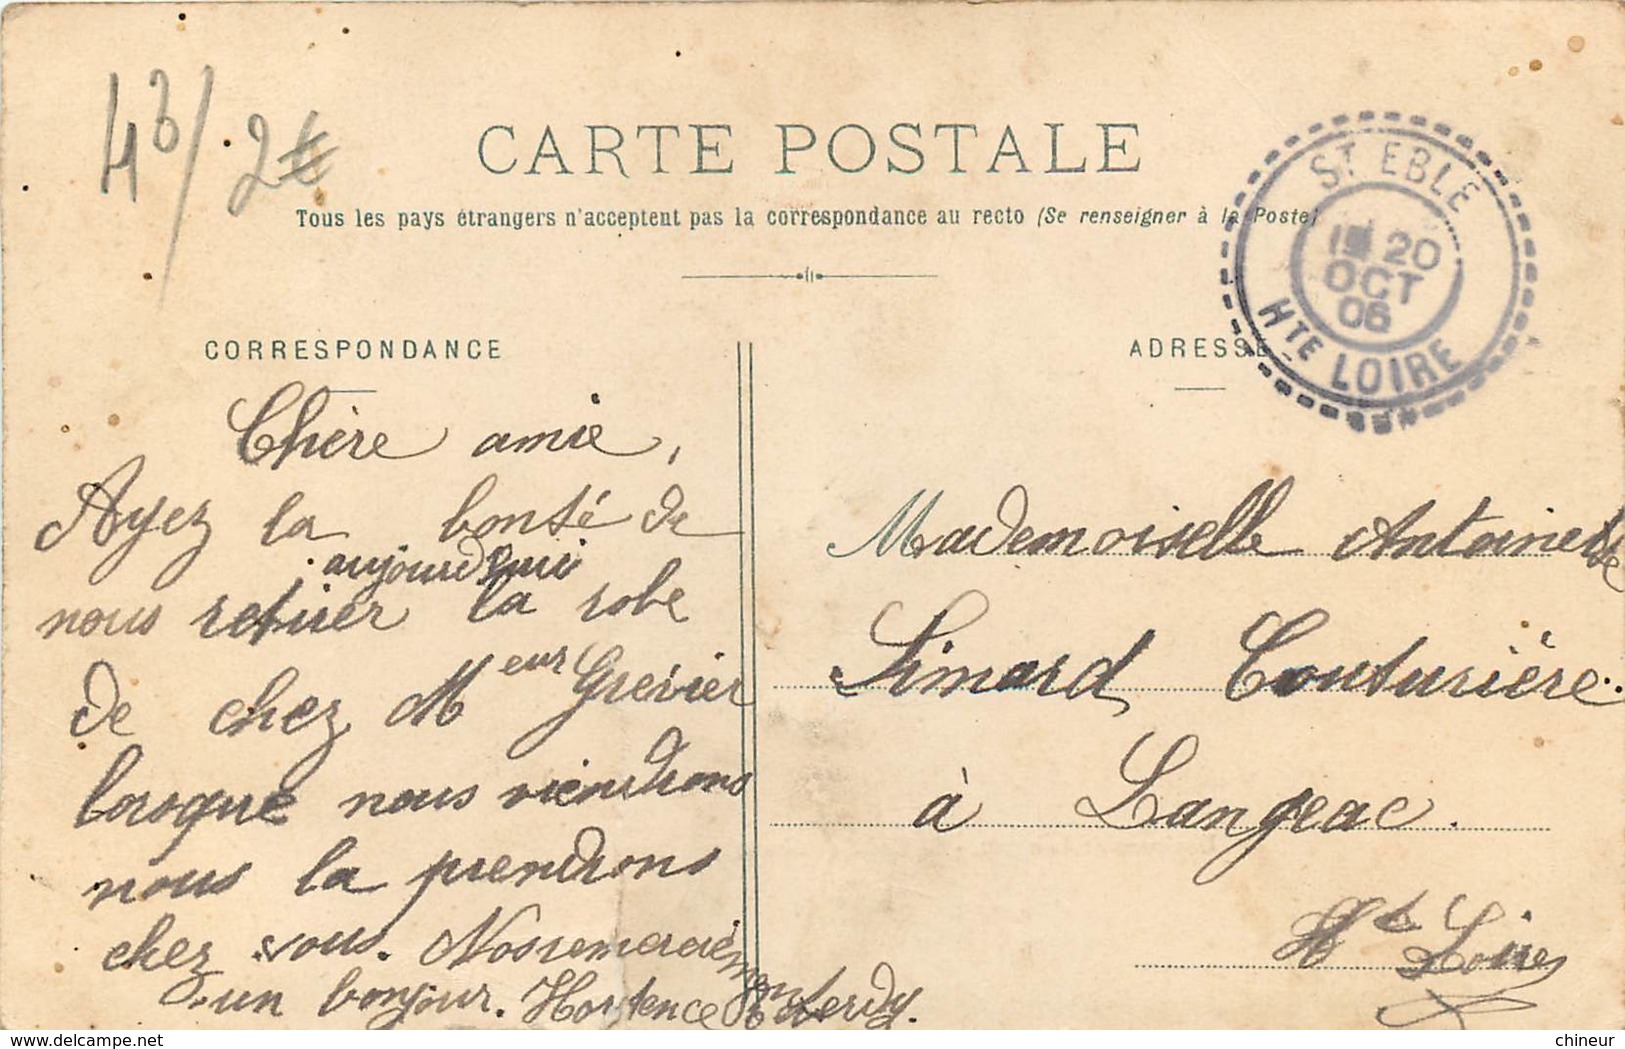 43/2€
CARTE POSTALE
Tous les pays étrangers n'acceptent pas la correspondance au recto (Se renseigner à la Poste)
ST EBLE
20
OCT
06
HTE LOIRE
CORRESPONDANCE
ADRESSE
Chère amie,
Ayez la bonté de
aujourd'hui
nous retirer la robe
de chez Meur Grevier
lorsque nous viendrons
nous la prendrons
chez vous. Nos remerciements
un bonjour. Hortence
Mademoiselle Antoinette
Limard Couturière.
à Langeac.
Hte Loire
delcampe.net
chineur